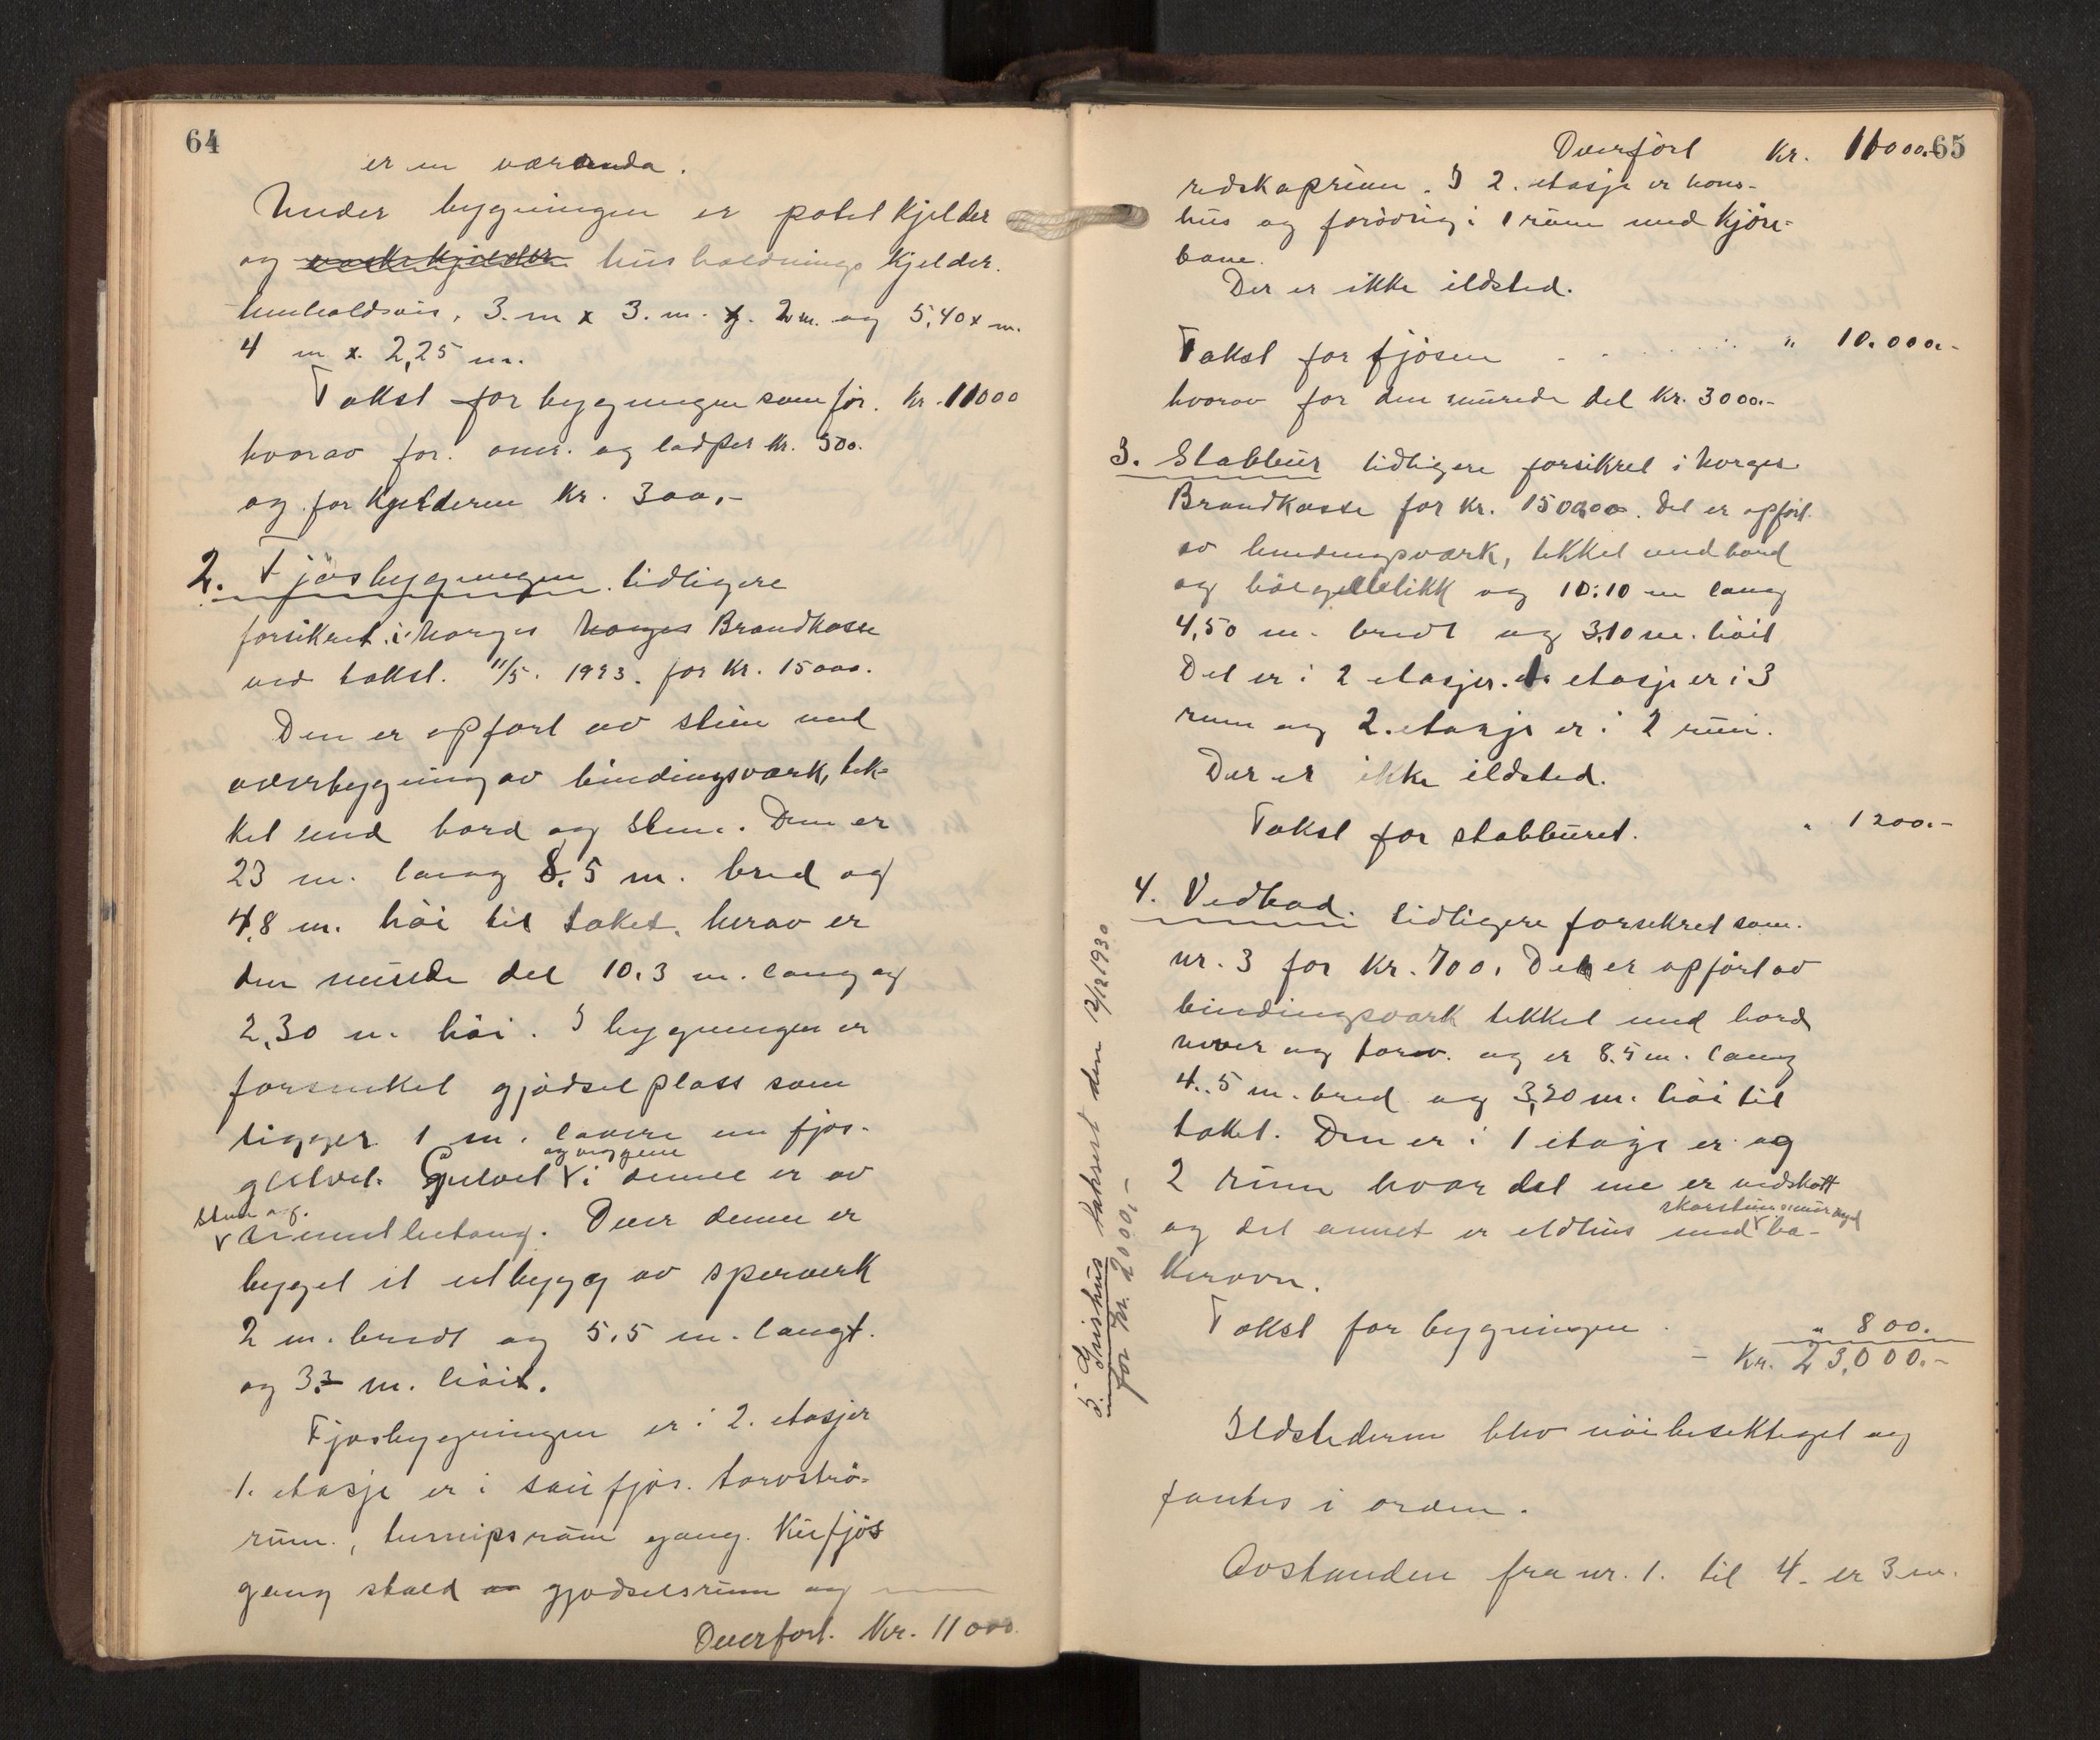 64
er en væranda.
Under bygningen er potet Kjelder
og vaske Kjelder husholdnings Kjelder.
henholdsvis, 3. m x 3. m. x. 2 m. og 5,40 x m.
4 m x. 2,25 m.
Takst for bygningen som før. Kr. 11000
hvorav for. omr. og ladper Kr. 500.
og for Kjelderen Kr. 300,-
2. Fjøsbygningen. tidligere
forsikret i Norges Norges Brandkasse
ved takst. 11/5. 1923. for Kr. 15000.
Den er opført av sten med
overbygning av bindingsværk, tæk-
ket med bord og stene. Den er
23 m. lang 8,5 m. bred og
4,8 m. høi til taket, herav er
den murede del 10,3 m. lang og
2,30 m. høi. I bygningen er
forsenket gjødselplass som
ligger 1 m. lavere en fjøs-
gulvet. Gulvet
og væggene
i denne er av
sten og.
sementbetong. Over denne er
bygget et utbygg av sperverk
2 m. bredt og 5,5 m. langt.
og 3,3 m. høit.
Fjøsbygningen er i 2. etasjer
1. etasje er i sau fjøs. torvströ-
rum., turnipsrum gang. Kufjøs
gang stald og gjødselsrum og
Overført. Kr. 11000.
65
Overført Kr. 11000.-
redskaprum. I 2. etasje er höns-
hus og forøvrig i 1 rum med Kjøre-
bane.
Der er ikke ildsted.
Takst for fjøsen - . . . . . " 10.000.-
hvorav for den murede del Kr. 3000.-
3. Stabbur tidligere forsikret i Norges
Brandkasse for Kr. 1500.00. Det er opført
av bindingsværk, tekket med bord
og bölgeblikk og 10:10 m lang
4,50 m. bredt og 3,10 m. höit
Det er i 2 etasjer. 1. etasje er i 3
rum og 2. etasje er i 2 rum.
Der er ikke ildsted.
Takst for stabburet. " 1200.-
4. Vedbod. tidligere forsikret som.
nr. 3 for Kr. 700. Den er opført av
bindingsvark tekket med bord
never og torv. og er 8.5 m. lang
4..5 m. bred og 3,20 m. høi til
taket. Den er i 1 etasje er og
2 rum hvor det ene er vedskott
og det annet er eldhus med
skorsten omur og
ba-
kerovn.
Takst for bygningen . " 800.
- Kr. 23,000.-
Ildstederne blev nöie besiktiget og
fantes i orden.
Avstanden fra nr. 1. til 4. er 3 m.
5. Grishus taksert den 12/12 1930
for Kr. 2000,-